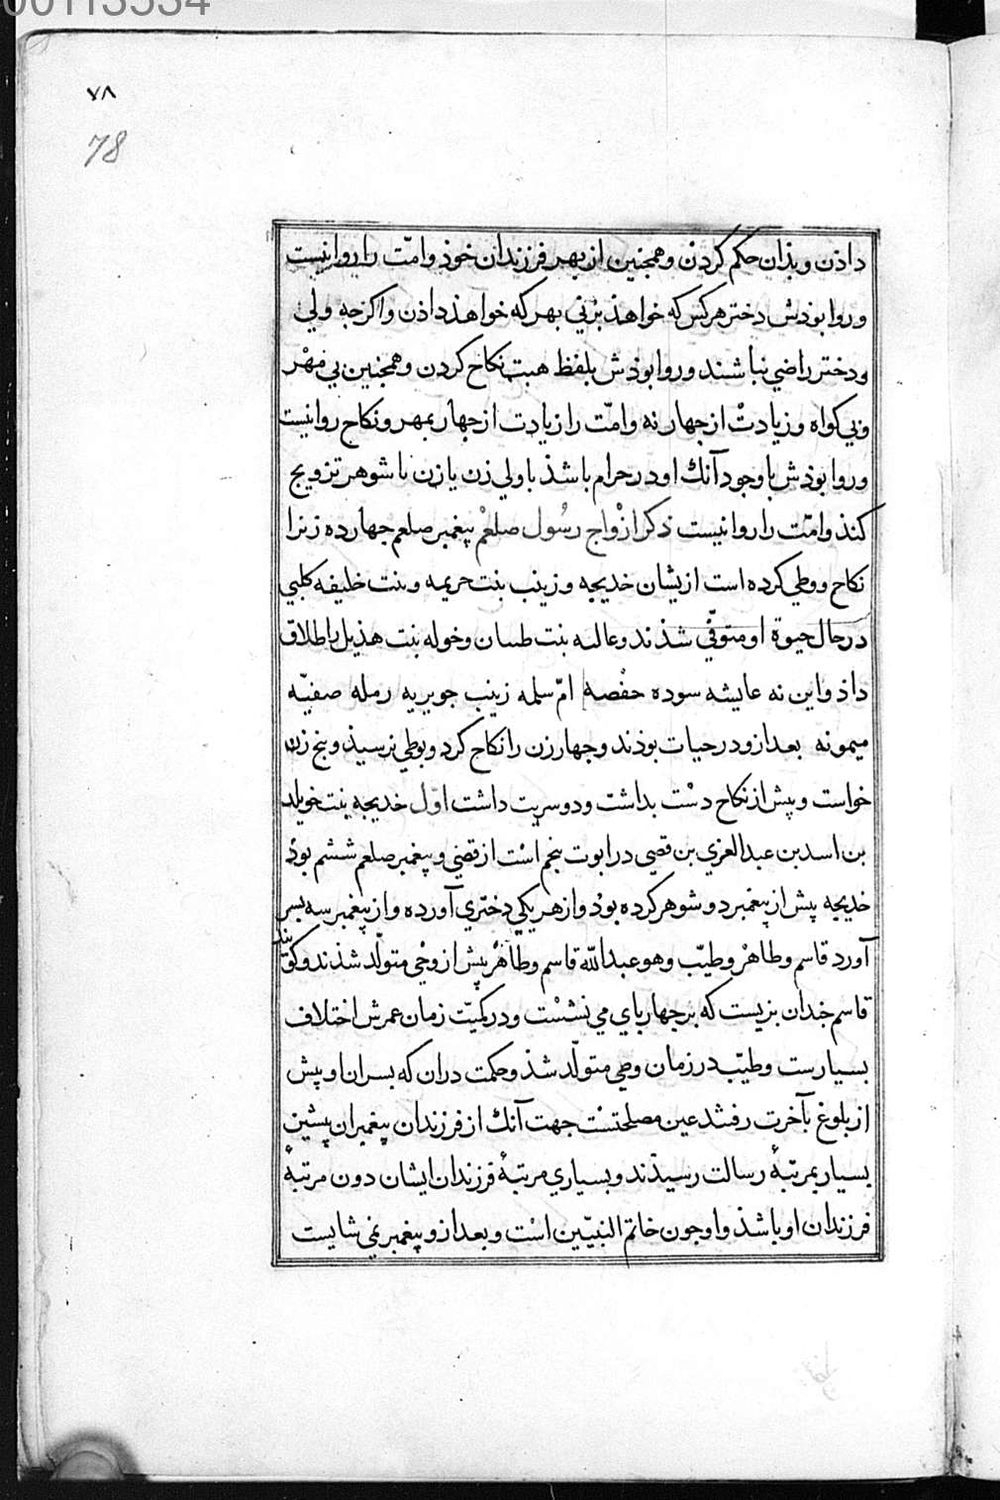 00113534
۷۸
78
داذن و بذان حکم کردن و همجنین از بهر فرزندان خوذ و امّت را روا نیست
و روا بوذش دختر هرکس که خواهذ بزنی بهرکه خواهذ داذن و اکرجه ولی
و دختر راضی نباشند و روا بوذش بلفظ هبت نکاح کردن و همجنین بی مهر
و بی کواه و زیادت از جهار نه و امّت را زیادت از جهار بمهر و نکاح روا نیست
و روا بوذش باوجود آنك او در حرام باشذ با ولی زن یا زن با شوهر تزویج
کنذ و امّت را روا نیست ذکر ازواج رسول صلعم پیغمبر صلعم جهارده زنرا
نکاح و وطی کرده است ازیشان خدیجه و زینب بنت حریمه و بنت خلیفه کلبی
در حال حیوة او متوفّی شذند و عالیه بنت طسان و خوله بنت هذیل را طلاق
داذ و این نه عایشه سوده حفصه امّ سلمه زینب جویریه رمله صفیّه
میمونه بعد ازو در حیات بوذند و جهار زن را نکاح کرد و بوطی نرسیذ و بنج زن
خواست و پیش از نکاح دست بداشت و دو سریت داشت اوّل خدیجه بنت خویلد
بن اسد بن عبد العزی بن قصی در ابوت بنجم است از قصی و پیغمبر صلعم ششم بوذ
خدیجه پیش از پیغمبر دو شوهر کرده بوذ و از هر یکی دختری آورده و از پیغمبر سه بسر
آورد قاسم و طاهر و طیّب و هو عبد اللّه قاسم و طاهر پیش از وحی متولّد شذند و کویند
قاسم جندان بزیست که بر جهاربای می نشست و در کمیّت زمان عمرش اختلاف
بسیارست و طیّب در زمان وحی متولّد شذ و حکمت دران که بسران او پیش
از بلوغ بآخرت رفتند عین مصلحتست جهت آنك از فرزندان پیغمبران پیشین
بسیار بمرتبهٔ رسالت رسیذند و بسیاری مرتبهٔ فرزندان ایشان دون مرتبهٔ
فرزندان او باشذ و او جون خاتم النبیّین است و بعد ازو پیغمبر نمی شایست